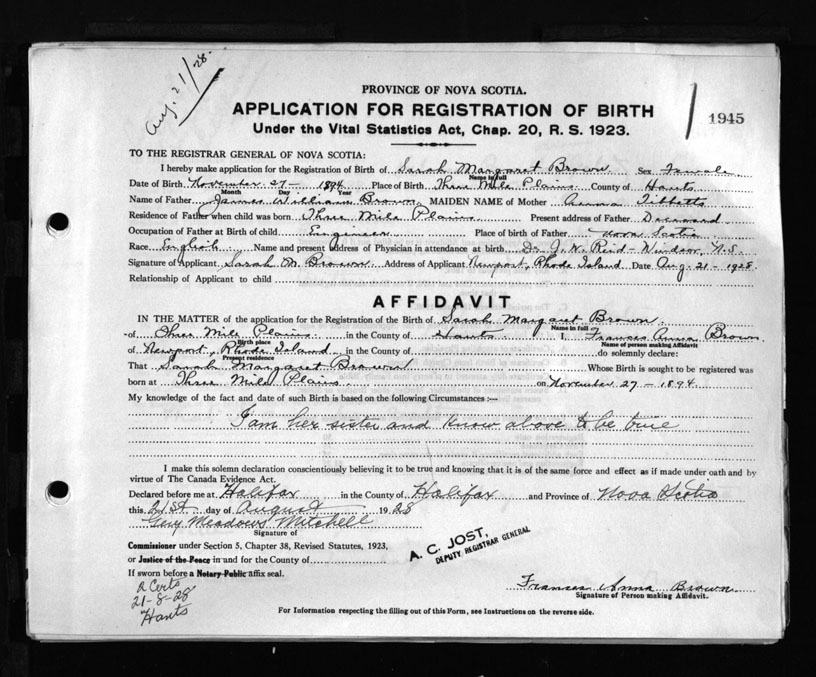 Aug. 21/28.
PROVINCE OF NOVA SCOTIA.
APPLICATION FOR REGISTRATION OF BIRTH
1945
Under the Vital Statistics Act, Chap. 20, R. S. 1923.
TO THE REGISTRAR GENERAL OF NOVA SCOTIA:
I hereby make application for the Registration of Birth of Sarah Margaret Brown Sex Female
Name in full
Date of Birth November 27 — 1894 Place of Birth Three Mile Plains County of Hants
Month Day Year
Name of Father James William Brown MAIDEN NAME of Mother Anna Tibbetts
Residence of Father when child was born Three Mile Plains Present address of Father Deceased
Occupation of Father at Birth of child Engineer Place of birth of Father Nova Scotia
Race English Name and present address of Physician in attendance at birth Dr. J. W. Reid - Windsor, N.S.
Signature of Applicant Sarah M. Brown Address of Applicant Newport, Rhode Island Date Aug. 21 - 1928.
Relationship of Applicant to child
AFFIDAVIT
IN THE MATTER of the application for the Registration of the Birth of Sarah Margaret Brown
Name in full
of Three Mile Plains in the County of Hants I, Frances Anna Brown
Birth place Name of person making Affidavit
of Newport, Rhode Island in the County of do solemnly declare:
Present residence
That Sarah Margaret Brown Whose Birth is sought to be registered was
born at Three Mile Plains on November 27 - 1894.
My knowledge of the fact and date of such Birth is based on the following Circumstances :—
I am her sister and know above to be true
I make this solemn declaration conscientiously believing it to be true and knowing that it is of the same force and effect as if made under oath and by
virtue of The Canada Evidence Act.
Declared before me at Halifax in the County of Halifax and Province of Nova Scotia
this 21st day of August 1928
Meadows Mitchell
Signature of
Commissioner under Section 5, Chapter 38, Revised Statutes, 1923,
or Justice of the Peace in and for the County of
If sworn before a Notary Public affix seal.
A. C. JOST,
DEPUTY REGISTRAR GENERAL
Frances Anna Brown
Signature of Person making Affidavit.
Certs
21-8-28
Hants
For Information respecting the filling out of this Form, see Instructions on the reverse side.